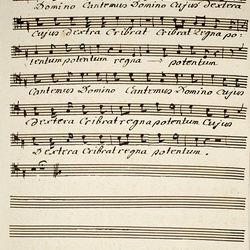 Domino Cantemus Domino Cujus dextera
Cujus dextra Cribrat Cribrat Regna po:
tentum potentum regna potentum
Cantemus Domino Cantemus Domino Cujus
Dextera Cribrat regna potentum Cujus
Dextera Cribrat regna potentum.